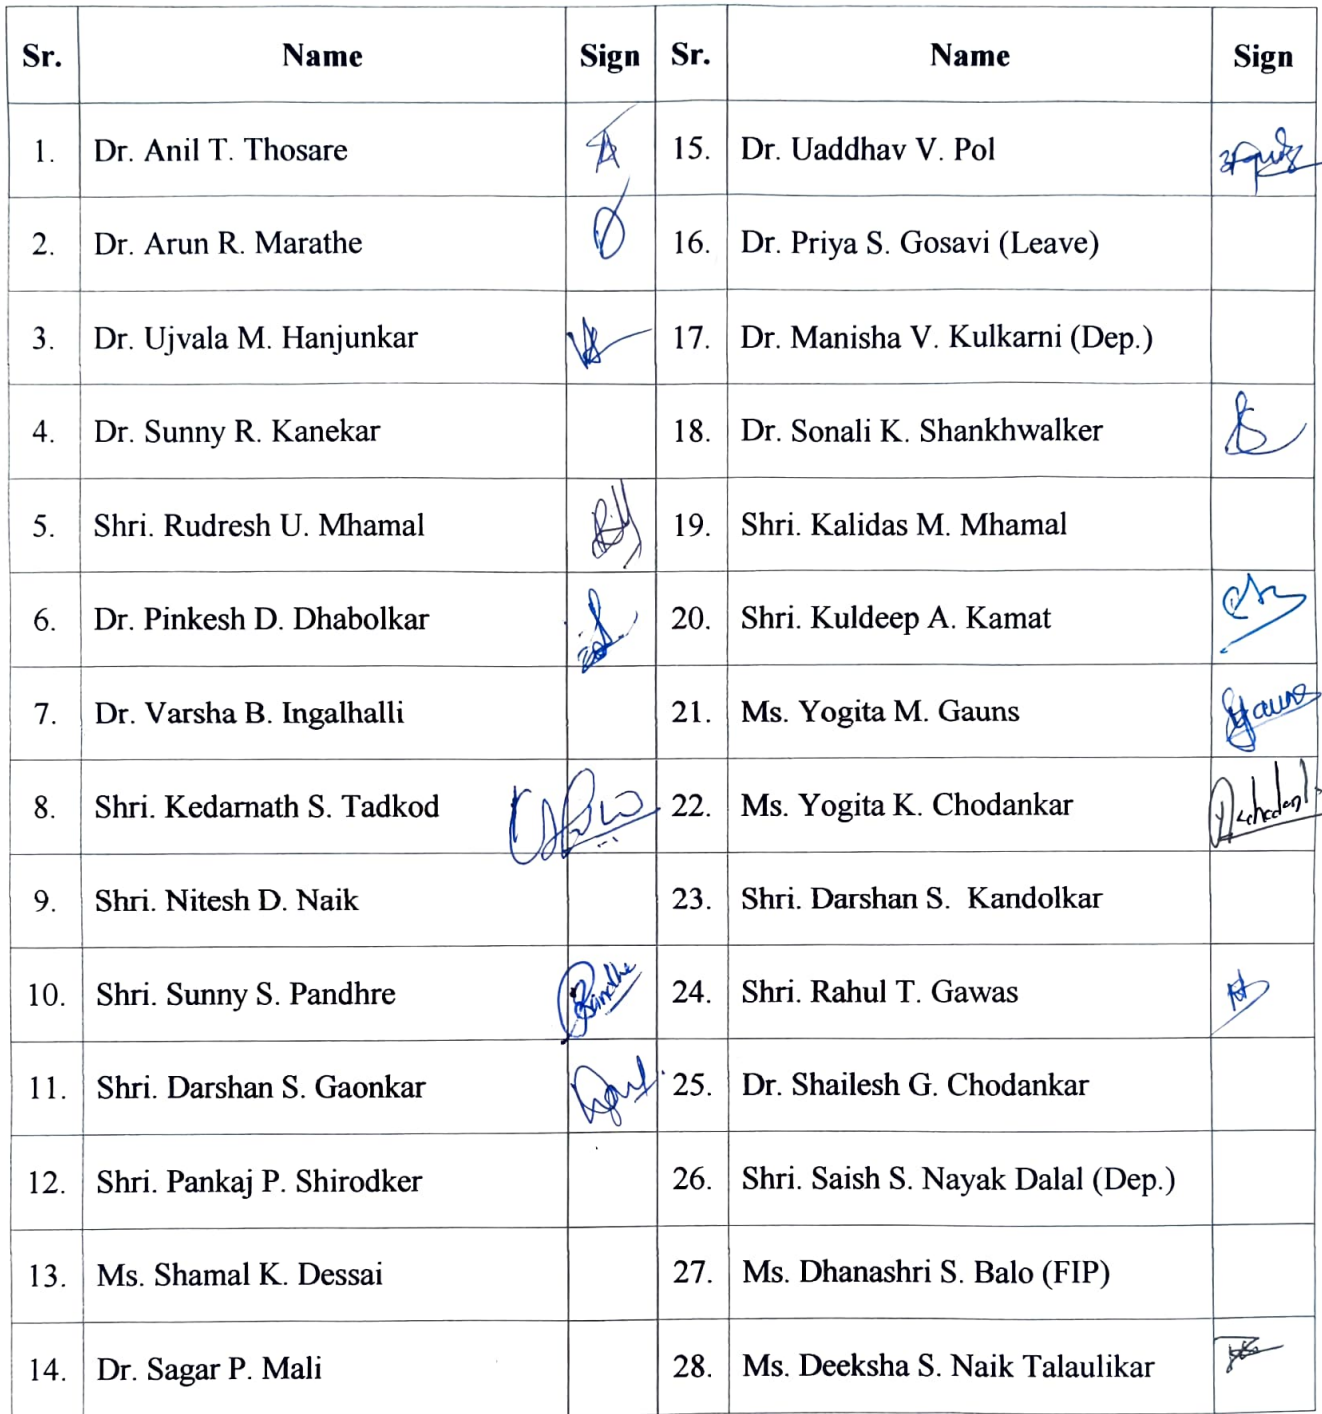 Sr. Name Sign Sr. Name Sign
1. Dr. Anil T. Thosare 15. Dr. Uaddhav V. Pol
2. Dr. Arun R. Marathe 16. Dr. Priya S. Gosavi (Leave)
3. Dr. Ujvala M. Hanjunkar 17. Dr. Manisha V. Kulkarni (Dep.)
4. Dr. Sunny R. Kanekar 18. Dr. Sonali K. Shankhwalker
5. Shri. Rudresh U. Mhamal 19. Shri. Kalidas M. Mhamal
6. Dr. Pinkesh D. Dhabolkar 20. Shri. Kuldeep A. Kamat
7. Dr. Varsha B. Ingalhalli 21. Ms. Yogita M. Gauns
8. Shri. Kedarnath S. Tadkod 22. Ms. Yogita K. Chodankar
9. Shri. Nitesh D. Naik 23. Shri. Darshan S. Kandolkar
10. Shri. Sunny S. Pandhre 24. Shri. Rahul T. Gawas
11. Shri. Darshan S. Gaonkar 25. Dr. Shailesh G. Chodankar
12. Shri. Pankaj P. Shirodker 26. Shri. Saish S. Nayak Dalal (Dep.)
13. Ms. Shamal K. Dessai 27. Ms. Dhanashri S. Balo (FIP)
14. Dr. Sagar P. Mali 28. Ms. Deeksha S. Naik Talaulikar